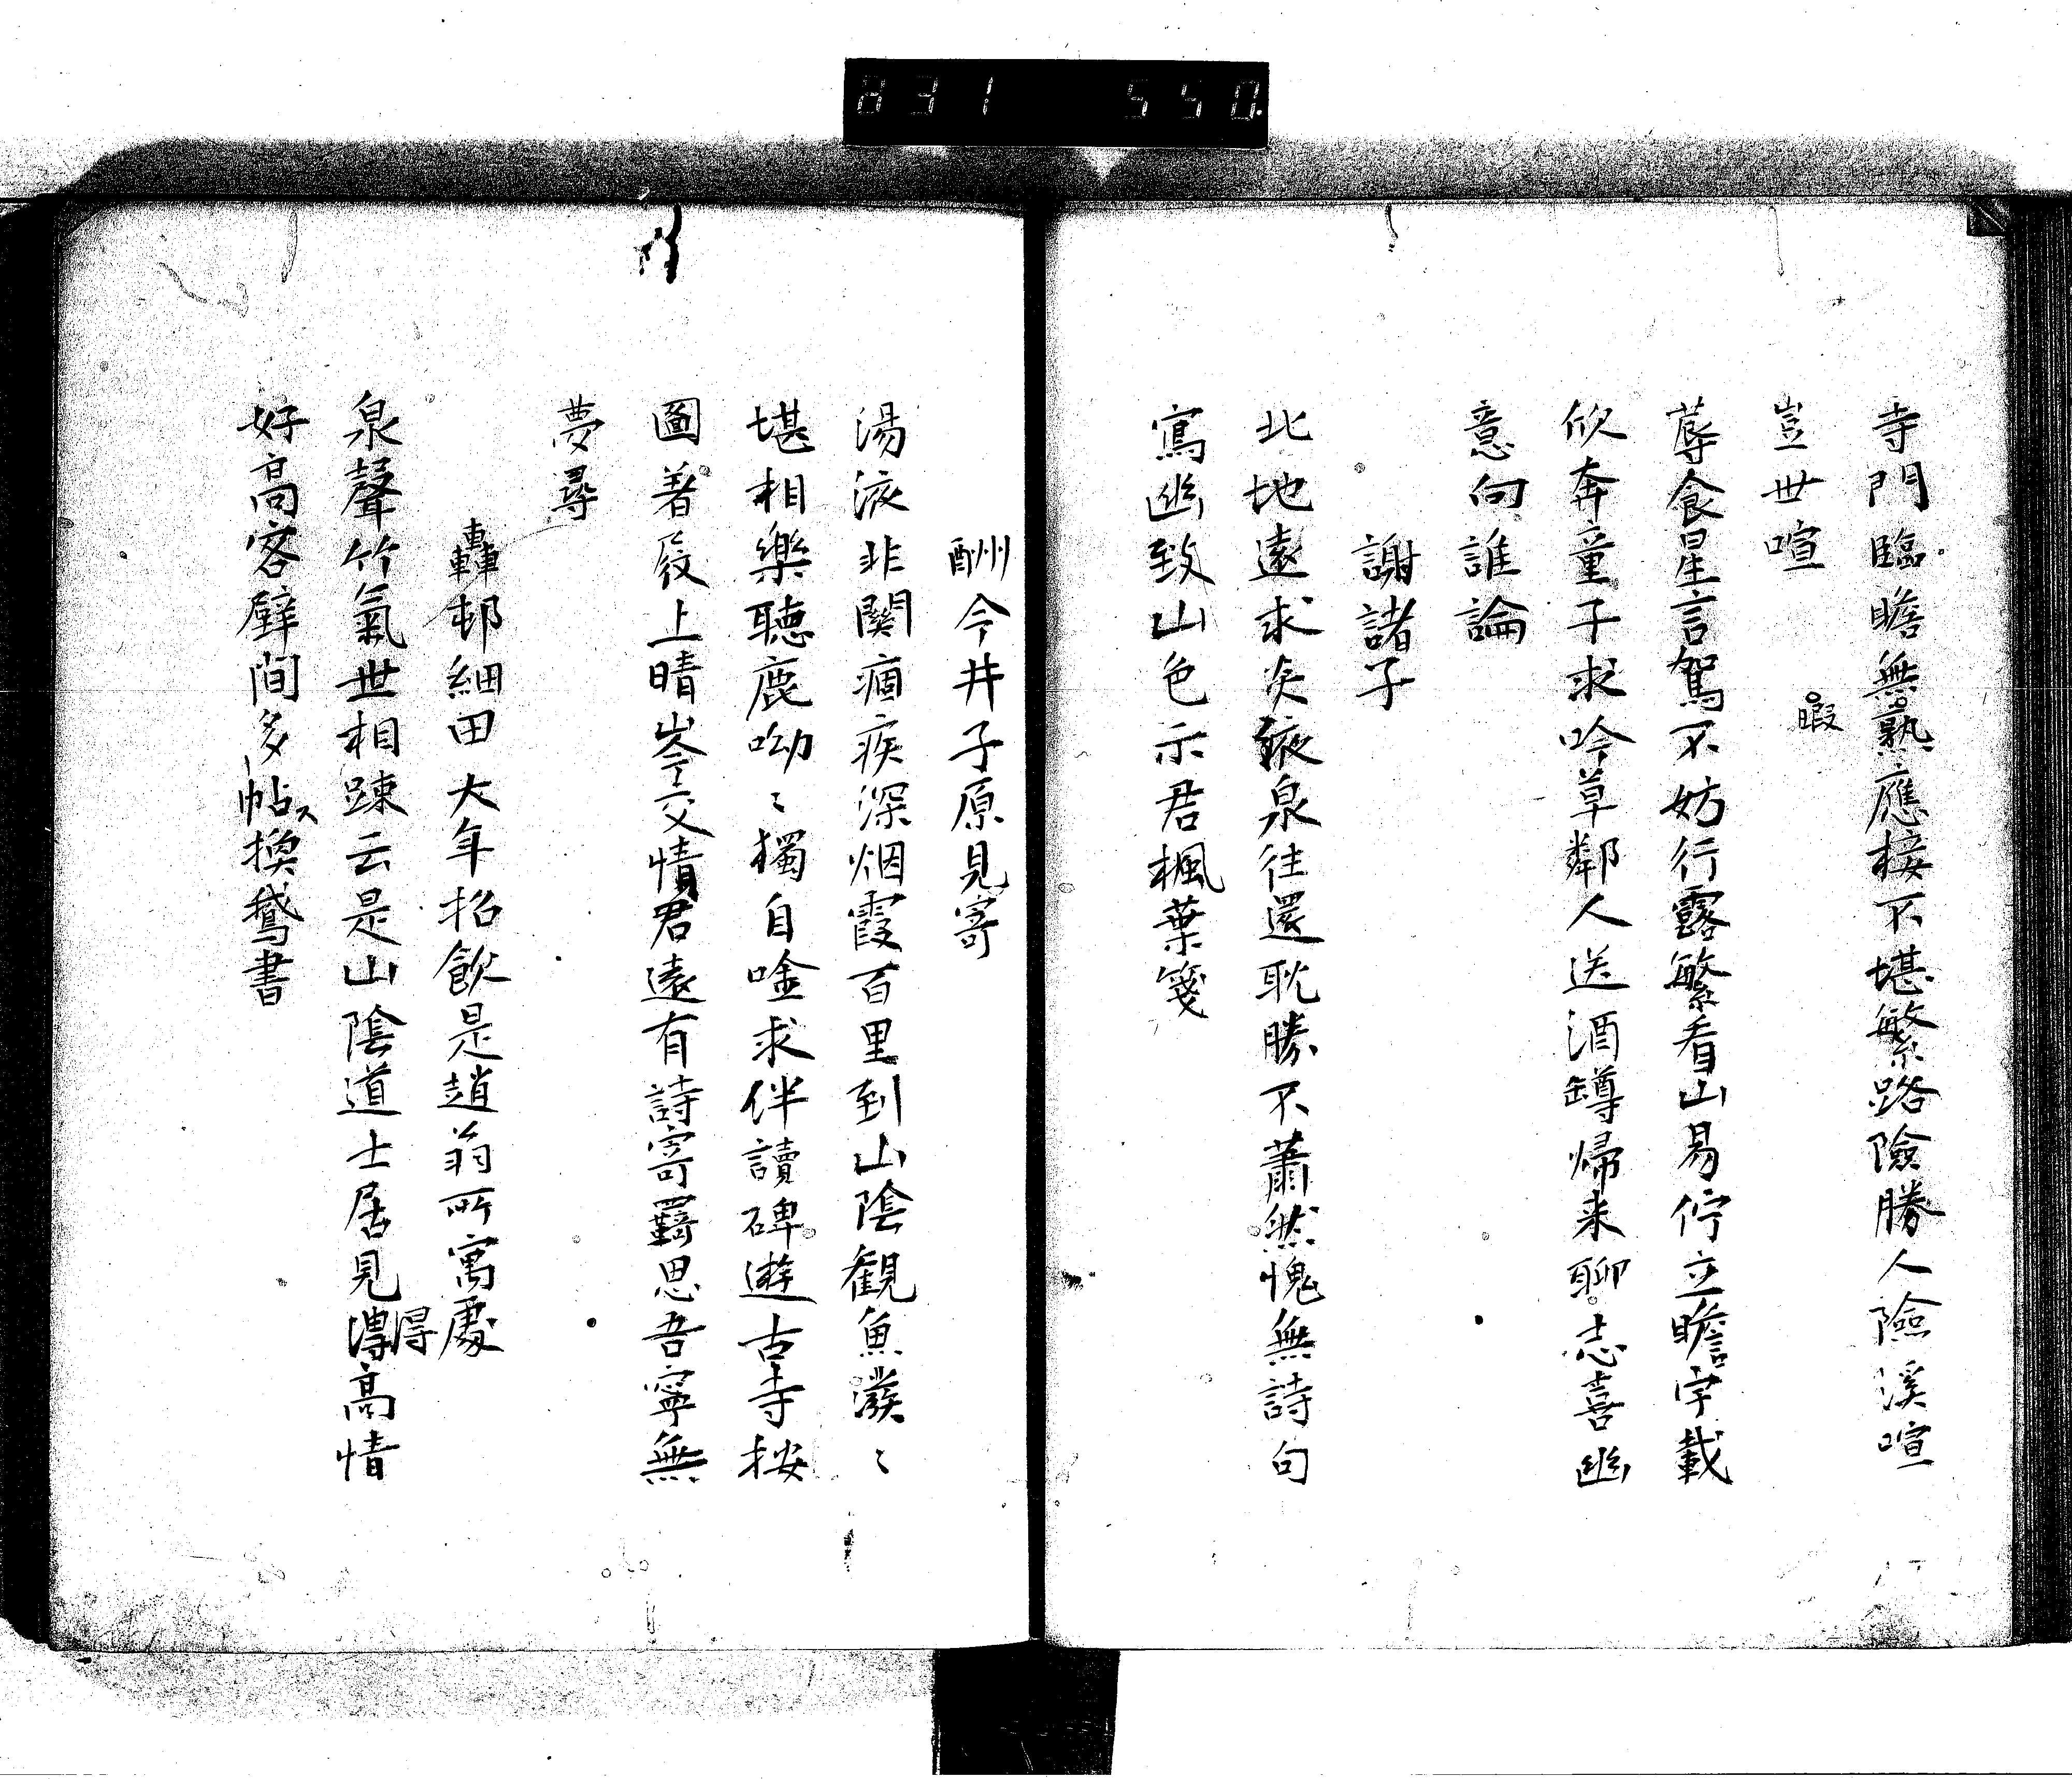 831 550
寺門臨瞻無熟應接不堪繁路險勝人險溪喧
暇
豈世喧
蓐食星言駕不妨行露繁看山易佇立瞻宇載
欣奔童子求吟草鄰人送酒罇帰来聊志喜幽
意向誰論
謝諸子
北地遠求炎液泉往還耽勝不蕭然愧無詩句
寫幽致山色示君楓葉箋
酬今井子原見寄
湯液非関痼疾深烟霞百里到山陰観魚潑〻
堪相樂聴鹿呦〻獨自唫求伴讀碑遊古寺按
圖著屐上晴岑交情君遠有詩寄羇思吾寧無
夢尋
轟邨細田大年招飲是趙翁所寓處
泉聲竹氣世相踈云是山陰道士居見淂高情
得
好高客壁間多帖換鵞書